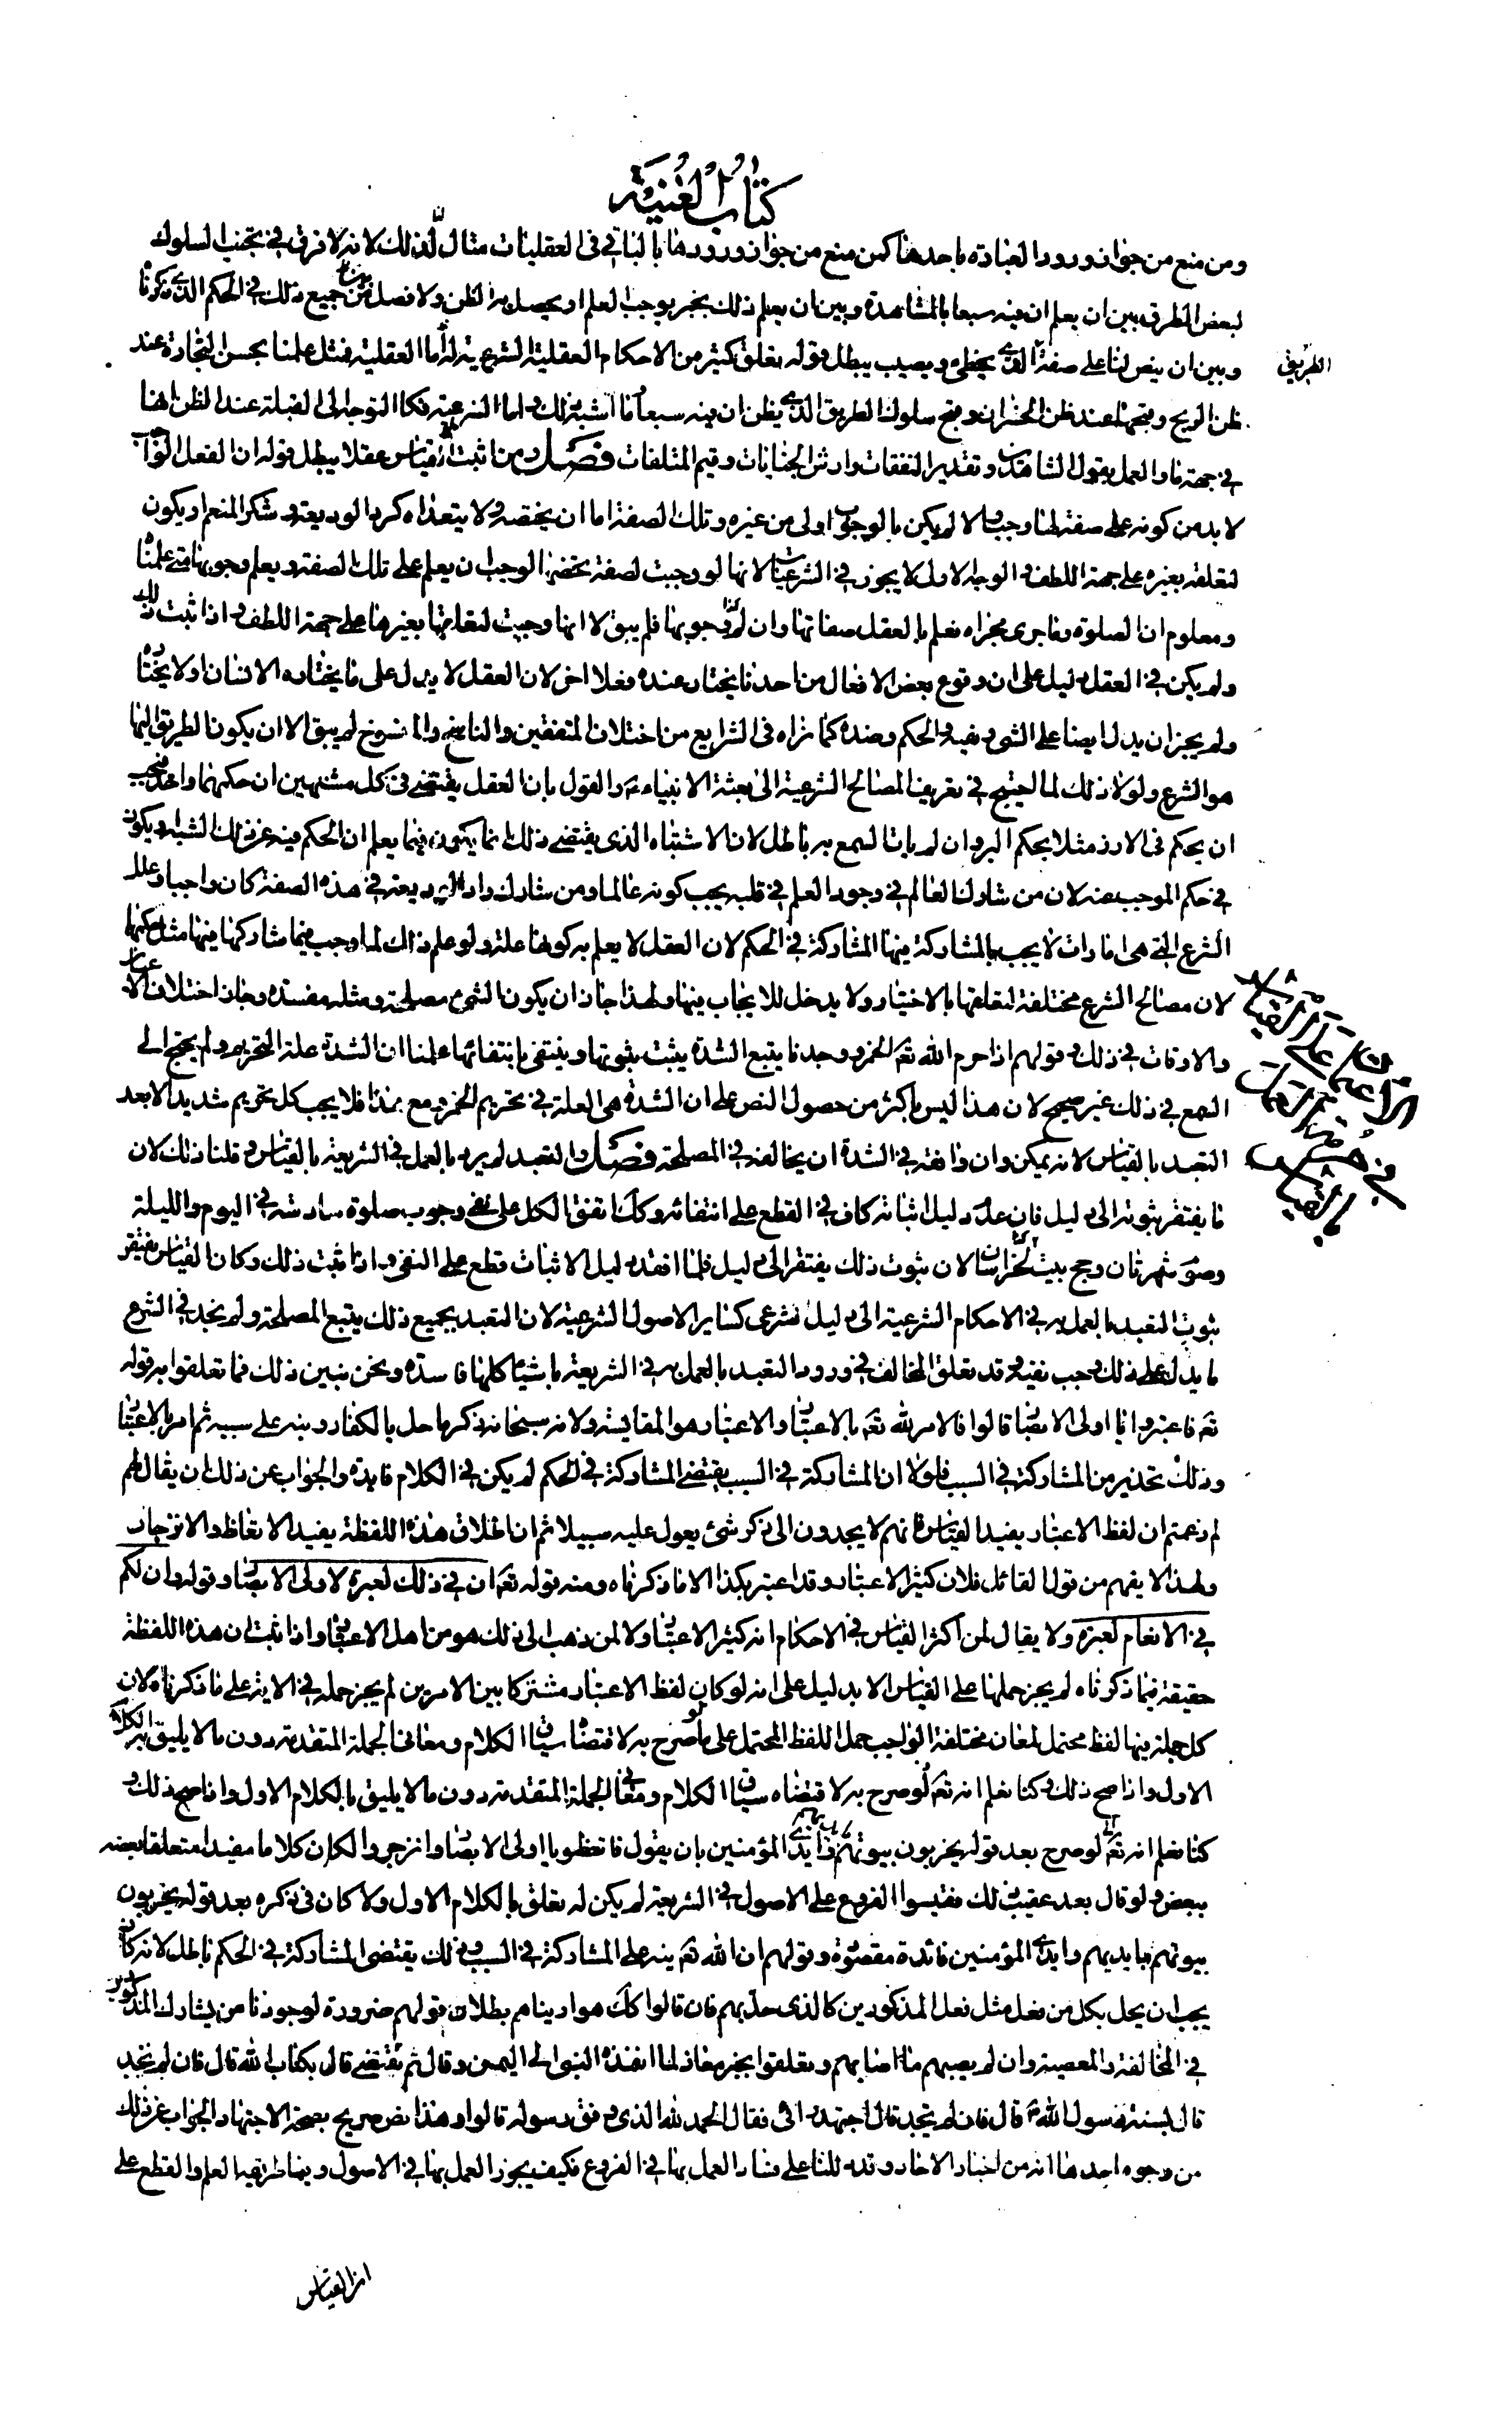 كتاب الغنية
ومن منع من جواز ورود العبادة باحدهما كمن منع من جواز ورودها بالباقي في العقليات مثال ذلك لانه لا فرق في تجنب السلوك
لبعض الطرق بين ان يعلم ان فيه سبعا بالمشاهدة وبين ان يعلم ذلك بخبر يوجب العلم او يحصل به الظن ولا فصل بين جميع ذلك في الحكم الذي ذكرناه
وبين ان ينص لنا على صفة الذي يخطئ ويصيب يبطل قوله بتعلق كثير من الاحكام العقلية الشرعية له اما العقلية فمثل علمنا بحسن التجارة عند
الطريق
ظن الربح وبقبحها عند ظن الخسران وبقبح سلوك الطريق الذي يظن ان فيه سبعا وما اشبه ذلك واما الشرعية فكالتوجه الى القبلة عند الظن انها
في جهة ما والعمل بقول الشاهدين وتقدير النفقات وارش الجنايات وقيم المتلفات فصل ومن اثبت القياس عقلا يبطل قوله ان الفعل الواجب
لا بد من كونه على صفة لها وجب والا لم يكن بالوجوب اولى من غيره وتلك الصفة اما ان يختصه ولا يتعداه كرد الوديعة وشكر المنعم او يكون
لتعلقه بغيره على جهة اللطف والوجه الاول لا يجوز في الشرعيات لانها لو وجبت لصفة تخصها لوجب ان يعلم على تلك الصفة ويعلم وجوبها متى علمناه
ومعلوم ان الصلوة وما جرى مجراه نعلم بالعقل صفاتها وان لم وجوبها فلم يبق الا انها وجبت لتعلقها بغيرها على جهة اللطف واذا ثبت ذلك
ولم يكن في العقل دليل على ان وقوع بعض الافعال من احدنا يختار عنده فعلا اخر لان العقل لا يدل على ما يختاره الانسان او لا يختاره
ولم يجز ان يدل ايضا على الشيء ونفيه والحكم وضده كما نراه في الشرايع من اختلاف المتفقين والناسخ والمنسوخ لم يبق الا ان يكون الطريق اليها
هو الشرع ولولا ذلك لما احتيج في تعريف المصالح الشرعية الى بعثة الانبياء والقول بان العقل يقتضي في كل مشتبهين ان حكمهما واحد فيجب
ان يحكم في الارز مثلا بحكم البر وان لم يات السمع به باطل لان الاشتباه الذي يقتضي ذلك انما يكون فيما يعلم ان الحكم فيه عن ذلك الشبه ويكون
في حكم الموجب عنه لان من شارك العالم في وجود العلم في قلبه يجب كونه عالما ومن شارك راد الوديعة في هذه الصفة كان واجبا وعلل
الشرع التي هي امارات لا يجب بالمشاركة فيها المشاركة في الحكم لان العقل لا يعلم به كونها علة ولو علم ذلك لما وجب فيما شاركها فيها مثل حكمها
لان مصالح الشرع مختلفة لتعلقها بالاختيار ولا يدخل للايجاب فيها ولهذا جاز ان يكون الشيء مصلحة ومثله مفسدة وجاز اختلاف الاعيان
والاوقات في ذلك وقولهم اذا حرم الله تع الخمر ووجدنا يتبع الشدة يثبت بثبوتها وينتفي بانتفائها علمنا ان الشدة علة التحريم ولم يحتج الى
السمع في ذلك غير صحيح لان هذا ليس باكثر من حصول النص على ان الشدة هي العلة في تحريم الخمر ومع هذا فلا يجب كل تحريم شديد الا بعد
التعبد بالقياس لانه يمكن وان وافقه في الشدة ان يخالفه في المصلحة فصل والتعبد لم يرد بالعمل في الشريعة بالقياس وقلنا ذلك لان
ما يفتقر ثبوته الى دليل فان عدم دليل اثباته كاف في القطع على انتفائه وكذلك اتفق الكل على نفي وجوب صلوة سادسة في اليوم والليلة
وصوم شهر ثان وحج بيت بخراسان لان ثبوت ذلك يفتقر الى دليل فلما افقد دليل الاثبات قطع على النفي واذا ثبت ذلك وكان القياس يفتقر
ثبوت التعبد بالعمل به في الاحكام الشرعية الى دليل شرعي كساير الاصول الشرعية لان التعبد بجميع ذلك يتبع المصلحة ولم نجد في الشرع
ما يدل على ذلك وجب نفيه وقد تعلق المخالف في ورود التعبد بالعمل به في الشريعة باشياء كلها فاسدة ونحن نبين ذلك فما تعلقوا به قوله
تع فاعتبروا يا اولي الابصار قالوا فالامر لله تع بالاعتبار والاعتبار هو المقايسة ولانه سبحانه ذكر ما حل بالكفار ونبه على سببه ثم امر بالاعتبار
وذلك تحذير من المشاركة في السبب فلولا ان المشاركة في السبب يقتضي المشاركة في الحكم لم يكن في الكلام فايدة والجواب عن ذلك ان يقال لهم
لم زعمتم ان لفظ الاعتبار يفيد القياس فانهم لا يجدون الى ذكر شئ يعول عليه سبيلا ثم ان اطلاق هذه اللفظة يفيد الاتعاظ والانزجار
ولهذا لا يفهم من قول القائل فلان كثير الاعتبار وقد اعتبر بكذا الا ما ذكرناه ومنه قوله تع ان في ذلك لعبرة لاولي الابصار وقوله وان لكم
في الانعام لعبرة ولا يقال لمن اكثر القياس في الاحكام انه كثير الاعتبار ولا لمن ذهب الى ذلك هو من اهل الاعتبار واذا ثبت ان هذه اللفظة
حقيقة فيما ذكرناه لم يجز حملها على القياس الا بدليل على انه لو كان لفظ الاعتبار مشتركا بين الامرين لم يجز حمله في الاية على ما ذكرناه لان
كل جملة فيها لفظ محتمل لمعان مختلفة الواجب حمل اللفظ المحتمل على ما لو صرح به لاقتضاه سياق الكلام ومعاني الجملة المتقدمة دون ما لا يليق بالكلام
الاول واذا صح ذلك وكنا نعلم انه تع لو صرح به لاقتضاه سياق الكلام ومعاني الجملة المتقدمة دون ما لا يليق بالكلام الاول واذا صح ذلك و
كنا نعلم انه تع لو صرح بعد قوله يخربون بيوتهم بايديهم وايدي المؤمنين بان يقول فاتعظوا يا اولي الابصار وانزجروا لكان كلاما مفيدا متعلقا بعضه
ببعض ولو قال بعد عقيب ذلك فقيسوا الفروع على الاصول في الشريعة لم يكن له تعلق بالكلام الاول ولا كان في ذكره بعد قوله يخربون
بيوتهم بايديهم وايدي المؤمنين فائدة مقصودة وقولهم ان الله تع ينبه على المشاركة في السبب وذلك يقتضي المشاركة في الحكم باطل لانه كان
يجب ان يحل بكل من فعل مثل فعل المذكورين كالذي حل بهم فان قالوا كذلك هو اريناهم بطلان قولهم ضرورة لوجودنا من يشارك المذكورين
في المخالفة والمعصية وان لم يصبهم ما اصابهم وتعلقوا بخبر معاذ لما انفذه النبي الى اليمن وقال ثم تقتضي قال بكتاب الله قال فان لم تجد
قال بسنة رسول الله قال فان لم تجد قال اجتهد رائي فقال الحمد لله الذي وفق رسوله قالوا وهذا نص صريح بصحة الاجتهاد والجواب عن ذلك
من وجوه احدها انه من اخبار الاحاد وقد دللنا على فساد العمل بها في الفروع فكيف يجوز العمل بها في الاصول وفيما طريقه العلم والقطع على
ان القياس